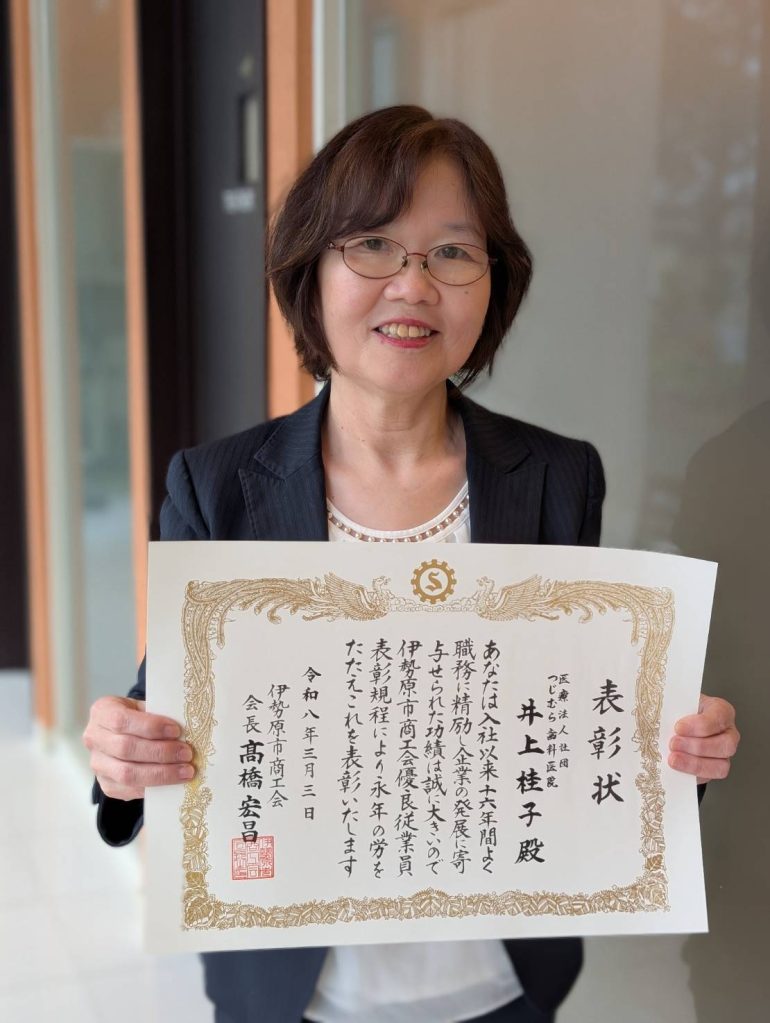 表彰状
医療法人社団
つじむら歯科医院
井上桂子殿
あなたは入社以来十六年間よく
職務に精励し企業の発展に寄
与せられた功績は誠に大きいので
伊勢原市商工会優良従業員
表彰規程により永年の労を
たたえこれを表彰いたします
令和八年三月三日
伊勢原市商工会
会長 髙橋宏昌